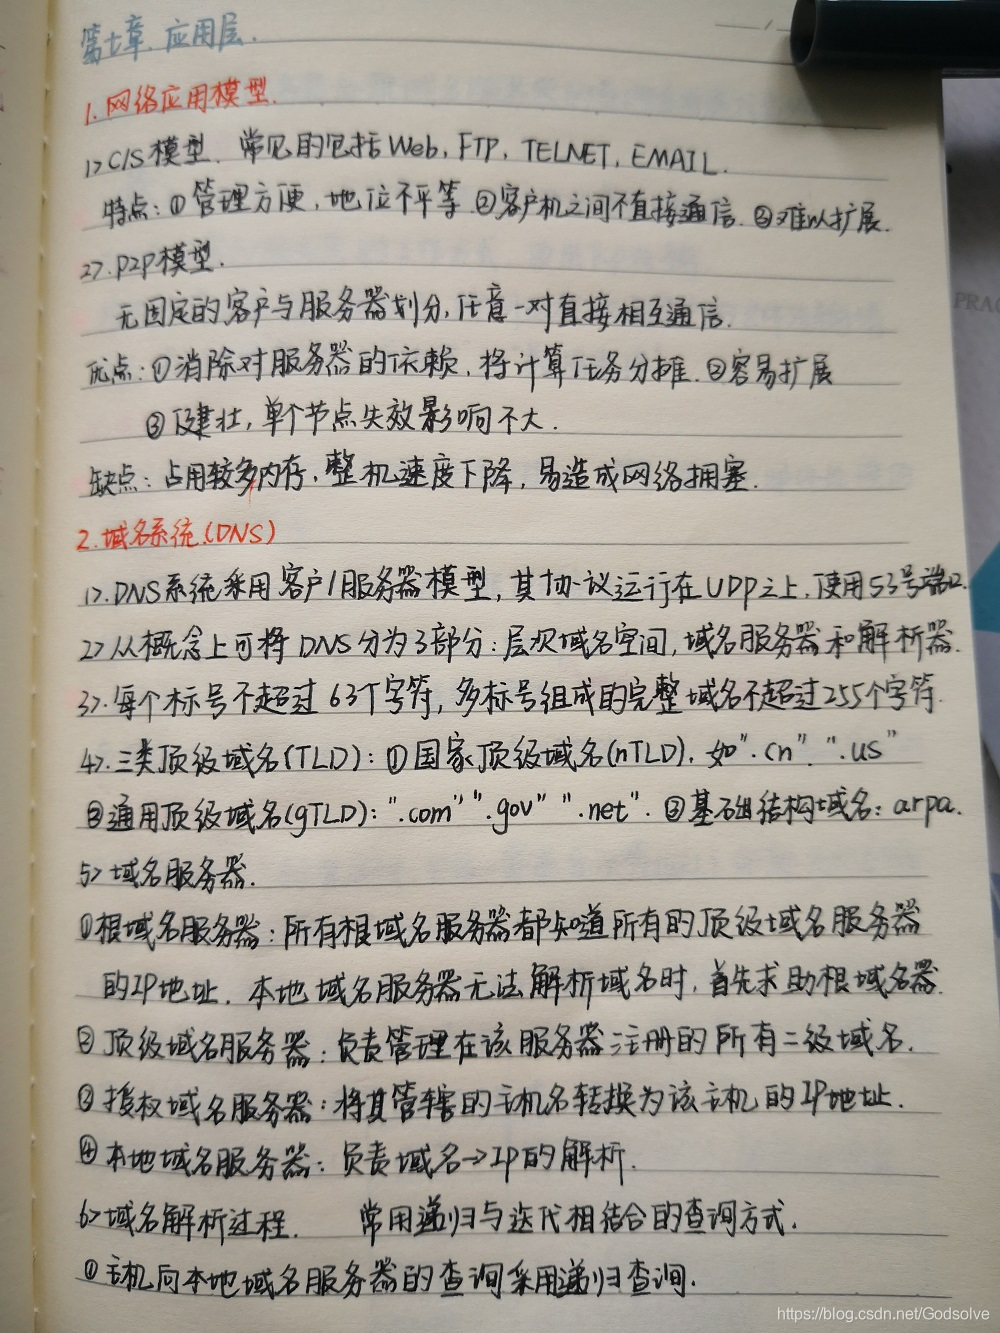 第七章. 应用层.
1.网络应用模型.
1> C/S模型. 常见的包括Web, FTP, TELNET, EMAIL.
特点: ①管理方便, 地位不平等 ②客户机之间不直接通信. ③难以扩展.
2>. P2P模型.
无固定的客户与服务器划分, 任意一对直接相互通信.
优点: ①消除对服务器的依赖, 将计算任务分摊. ②容易扩展
③健壮, 单个节点失效影响不大.
缺点: 占用较多内存, 整机速度下降, 易造成网络拥塞.
2.域名系统(DNS)
1>.DNS系统采用客户/服务器模型, 其协议运行在UDP之上, 使用53号端口.
2> 从概念上可将DNS分为3部分: 层次域名空间, 域名服务器和解析器.
3>. 每个标号不超过63个字符, 多标号组成的完整域名不超过255个字符.
4>. 三类顶级域名(TLD): ①国家顶级域名(nTLD). 如".cn". ".us"
②通用顶级域名(gTLD): ".com" ".gov" ".net". ③基础结构域名: arpa.
5> 域名服务器.
①根域名服务器: 所有根域名服务器都知道所有的顶级域名服务器
的IP地址. 本地域名服务器无法解析域名时, 首先求助根域名器.
② 顶级域名服务器: 负责管理在该服务器注册的所有二级域名.
③ 授权域名服务器: 将其管辖的主机名转换为该主机的IP地址.
④ 本地域名服务器: 负责域名→IP的解析.
6> 域名解析过程. 常用递归与迭代相结合的查询方式.
① 主机向本地域名服务器的查询采用递归查询.
PRAC
https://blog.csdn.net/Godsolve